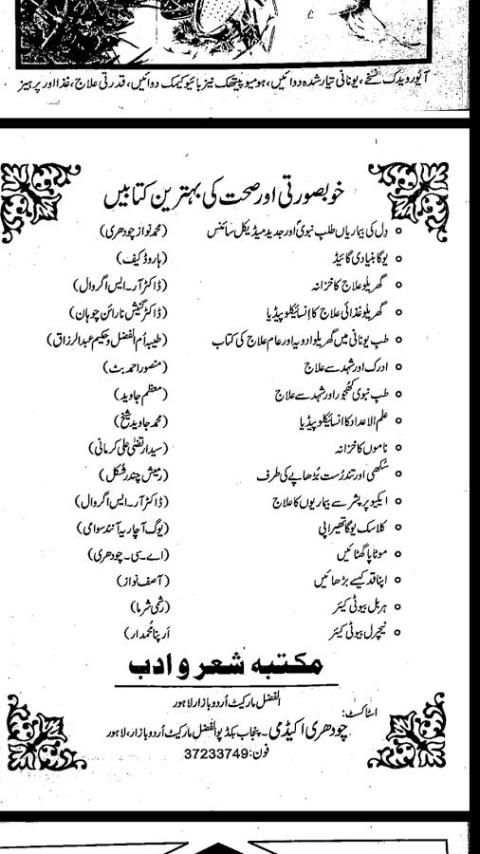 آیورویدک نسخے، یونانی تیار شدہ دوائیں، ہومیوپیتھک نیز بائیوکیمک دوائیں، قدرتی علاج، غذا اور پرہیز
خوبصورتی اور صحت کی بہترین کتابیں
○ دل کی بیماریاں طب نبویؐ اور جدید میڈیکل سائنس (محمد نواز چودھری)
○ یوگا بنیادی گائیڈ (ہاورڈ کیف)
○ گھریلو علاج کا خزانہ (ڈاکٹر آر۔ ایس اگروال)
○ گھریلو غذائی علاج کا انسائیکلوپیڈیا (ڈاکٹر گنیش نارائن چوہان)
○ طب یونانی میں گھریلو ادویہ اور عام علاج کی کتاب (طیبہ اُم الفضل و حکیم عبدالرزاق)
○ ادرک اور شہد سے علاج (منصور احمد بٹ)
○ طب نبوی کھجور اور شہد سے علاج (معظم جاوید)
○ علم الاعداد کا انسائیکلوپیڈیا (محمد جاوید شیخ)
○ ناموں کا خزانہ (سید ارتضیٰ علی کرمانی)
○ سُکھی اور تندرست بُڑھاپے کی طرف (رمیش چندر شکل)
○ ایکیوپریشر سے بیماریوں کا علاج (ڈاکٹر آر۔ ایس اگروال)
○ کلاسک یوگا تھیراپی (یوگ آچاریہ آنند سوامی)
○ موٹاپا گھٹائیں (اے۔ سی۔ چودھری)
○ اپنا قد کیسے بڑھائیں (آصف نواز)
○ ہربل بیوٹی کیئر (رشمی شرما)
○ نیچرل بیوٹی کیئر (اَرپنا مُجمدار)
مکتبہ شعر و ادب
الفضل مارکیٹ اُردو بازار لاہور
اسٹاکسٹ:
چودھری اکیڈمی۔ پنجاب بکڈپو الفضل مارکیٹ اُردو بازار، لاہور
فون: 37233749